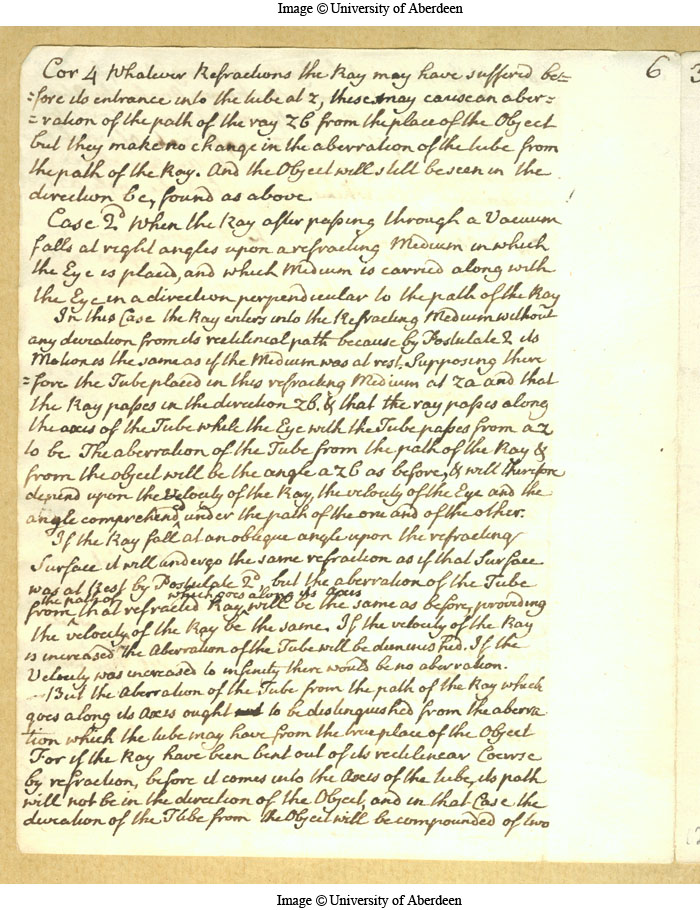 Image © University of Aberdeen
6
3
Cor 4 Whatever Refractions the Ray may have suffered be=
=fore its entrance into the tube at z, these may cause an aber=
=ration of the path of the ray zb from the place of the Object
but they make no change in the aberration of the tube from
the path of the Ray. And the Object will still be seen in the
direction bc, found as above
Case 2d When the Ray after passing through a Vacuum
falls at right angles upon a refracting Medium in which
the Eye is placed, and which Medium is carried along with
the Eye in a direction perpendicular to the path of the Ray
In this Case the Ray enters into the Refracting Medium without
any deviation from its rectilineal path because by Postulate 2 its
Motion is the same as if the Medium was at rest. Supposing there
=fore the Tube placed in this refracting Medium at za and that
the Ray passes in the direction zb. & that the ray passes along
the axis of the Tube while the Eye with the Tube passes from a z
to be The aberration of the Tube from the path of the Ray &
from the object will be the angle a z b as before, & will therefore
depend upon the Velocity of the Ray, the velocity of the Eye and the
angle comprehend'd under the path of the one and of the other.
If the Ray fall at an oblique angle upon the refracting
Surface it will undergo the same refraction as if that Surface
was at Rest by Postulate 2d, but the aberration of the Tube
the path of which goes along its Axis
from that refracted Ray will be the same as before, providing
the velocity of the Ray be the same. If the velocity of the Ray
is increased the Aberration of the Tube will be diminished. If the
Velocity was increased to infinity there would be no aberration.
But the Aberration of the Tube from the path of the Ray which
goes along its Axis ought to be distinguished from the aberra
tion which the tube may have from the true place of the Object
For if the Ray have been bent out of its rectilinear Course
by refraction, before it comes into the Axis of the tube, its path
will not be in the direction of the Object, and in that Case the
deviation of the Tube from the Object will be compounded of two
Image © University of Aberdeen